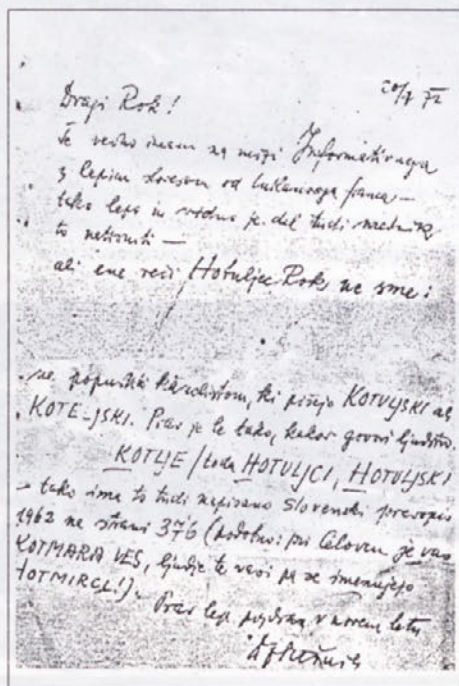 20/7 72
Dragi Rok!
Še vedno imam na mizi Informativnega
z lepim
tako lepo in vedno je del tudi urednika
to
ali ene reči Hotuljec Rok ne sme:
ne popustiti, ki pišejo KOTULJSKI ali
KOTELJSKI. Prav je le tako, kakor govori ljudstvo.
KOTLJE / toda HOTULJCI, HOTULJSKI
– tako ima to tudi Slovenski pravopis
1962 na strani 376 (podobno: pri Celovcu je vas
KOTMARA VES, ljudje te vasi pa se imenujejo
HOTMIRCI!).
Prav lep pozdrav v novem letu